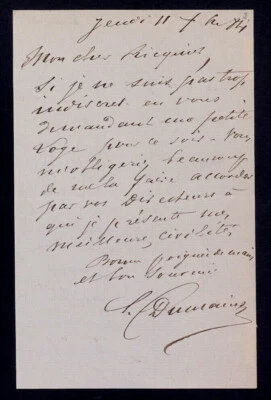 Jeudi 11
Mon cher
Si je ne suis pas trop
indiscret en vous
demandant une petite
Loge pour ce soir - vous
m'obligeriez beaucoup
de me la faire accorder
par vos Directeurs à
qui je présente mes
meilleures civilités,
Bonne poignée de main
et bon souvenir